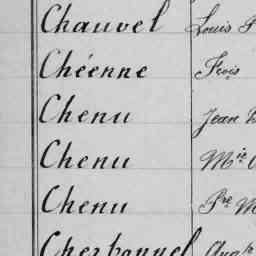 Chauvel Louis
Chéenne Fçois
Chenu Jean
Chenu Mie
Chenu Pre M
Cherbonnel Augte